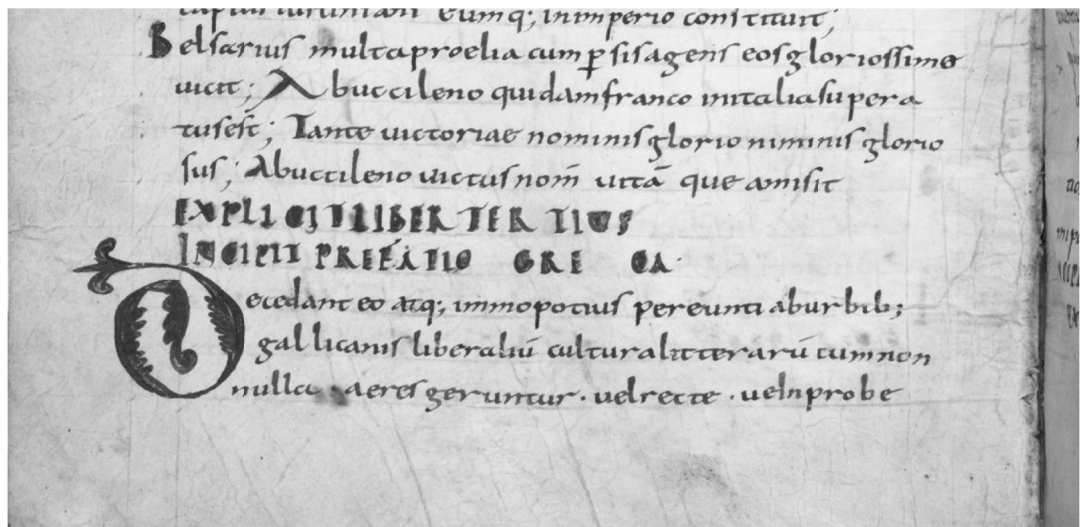 captus iustiniani eumq; in imperio constituit;
Belsarius multa proelia cum ꝑsis agens eos gloriossime
uicit; A buccileno quidam franco in italia supera
tus est; Tante uictoriae nominis glorio niminis glorio
sus; Abuccileno uictus nom̄ uitā que amisit
EXPLICIT LIBER TERTIUS
INCIPIT PREFATIO GRE CA
Decedant eo atq; immo potius pereunti ab urbib;
gallicanis liberaliū cultura litterarū cum non
nulla aeres geruntur · uel recte · uel nprobe